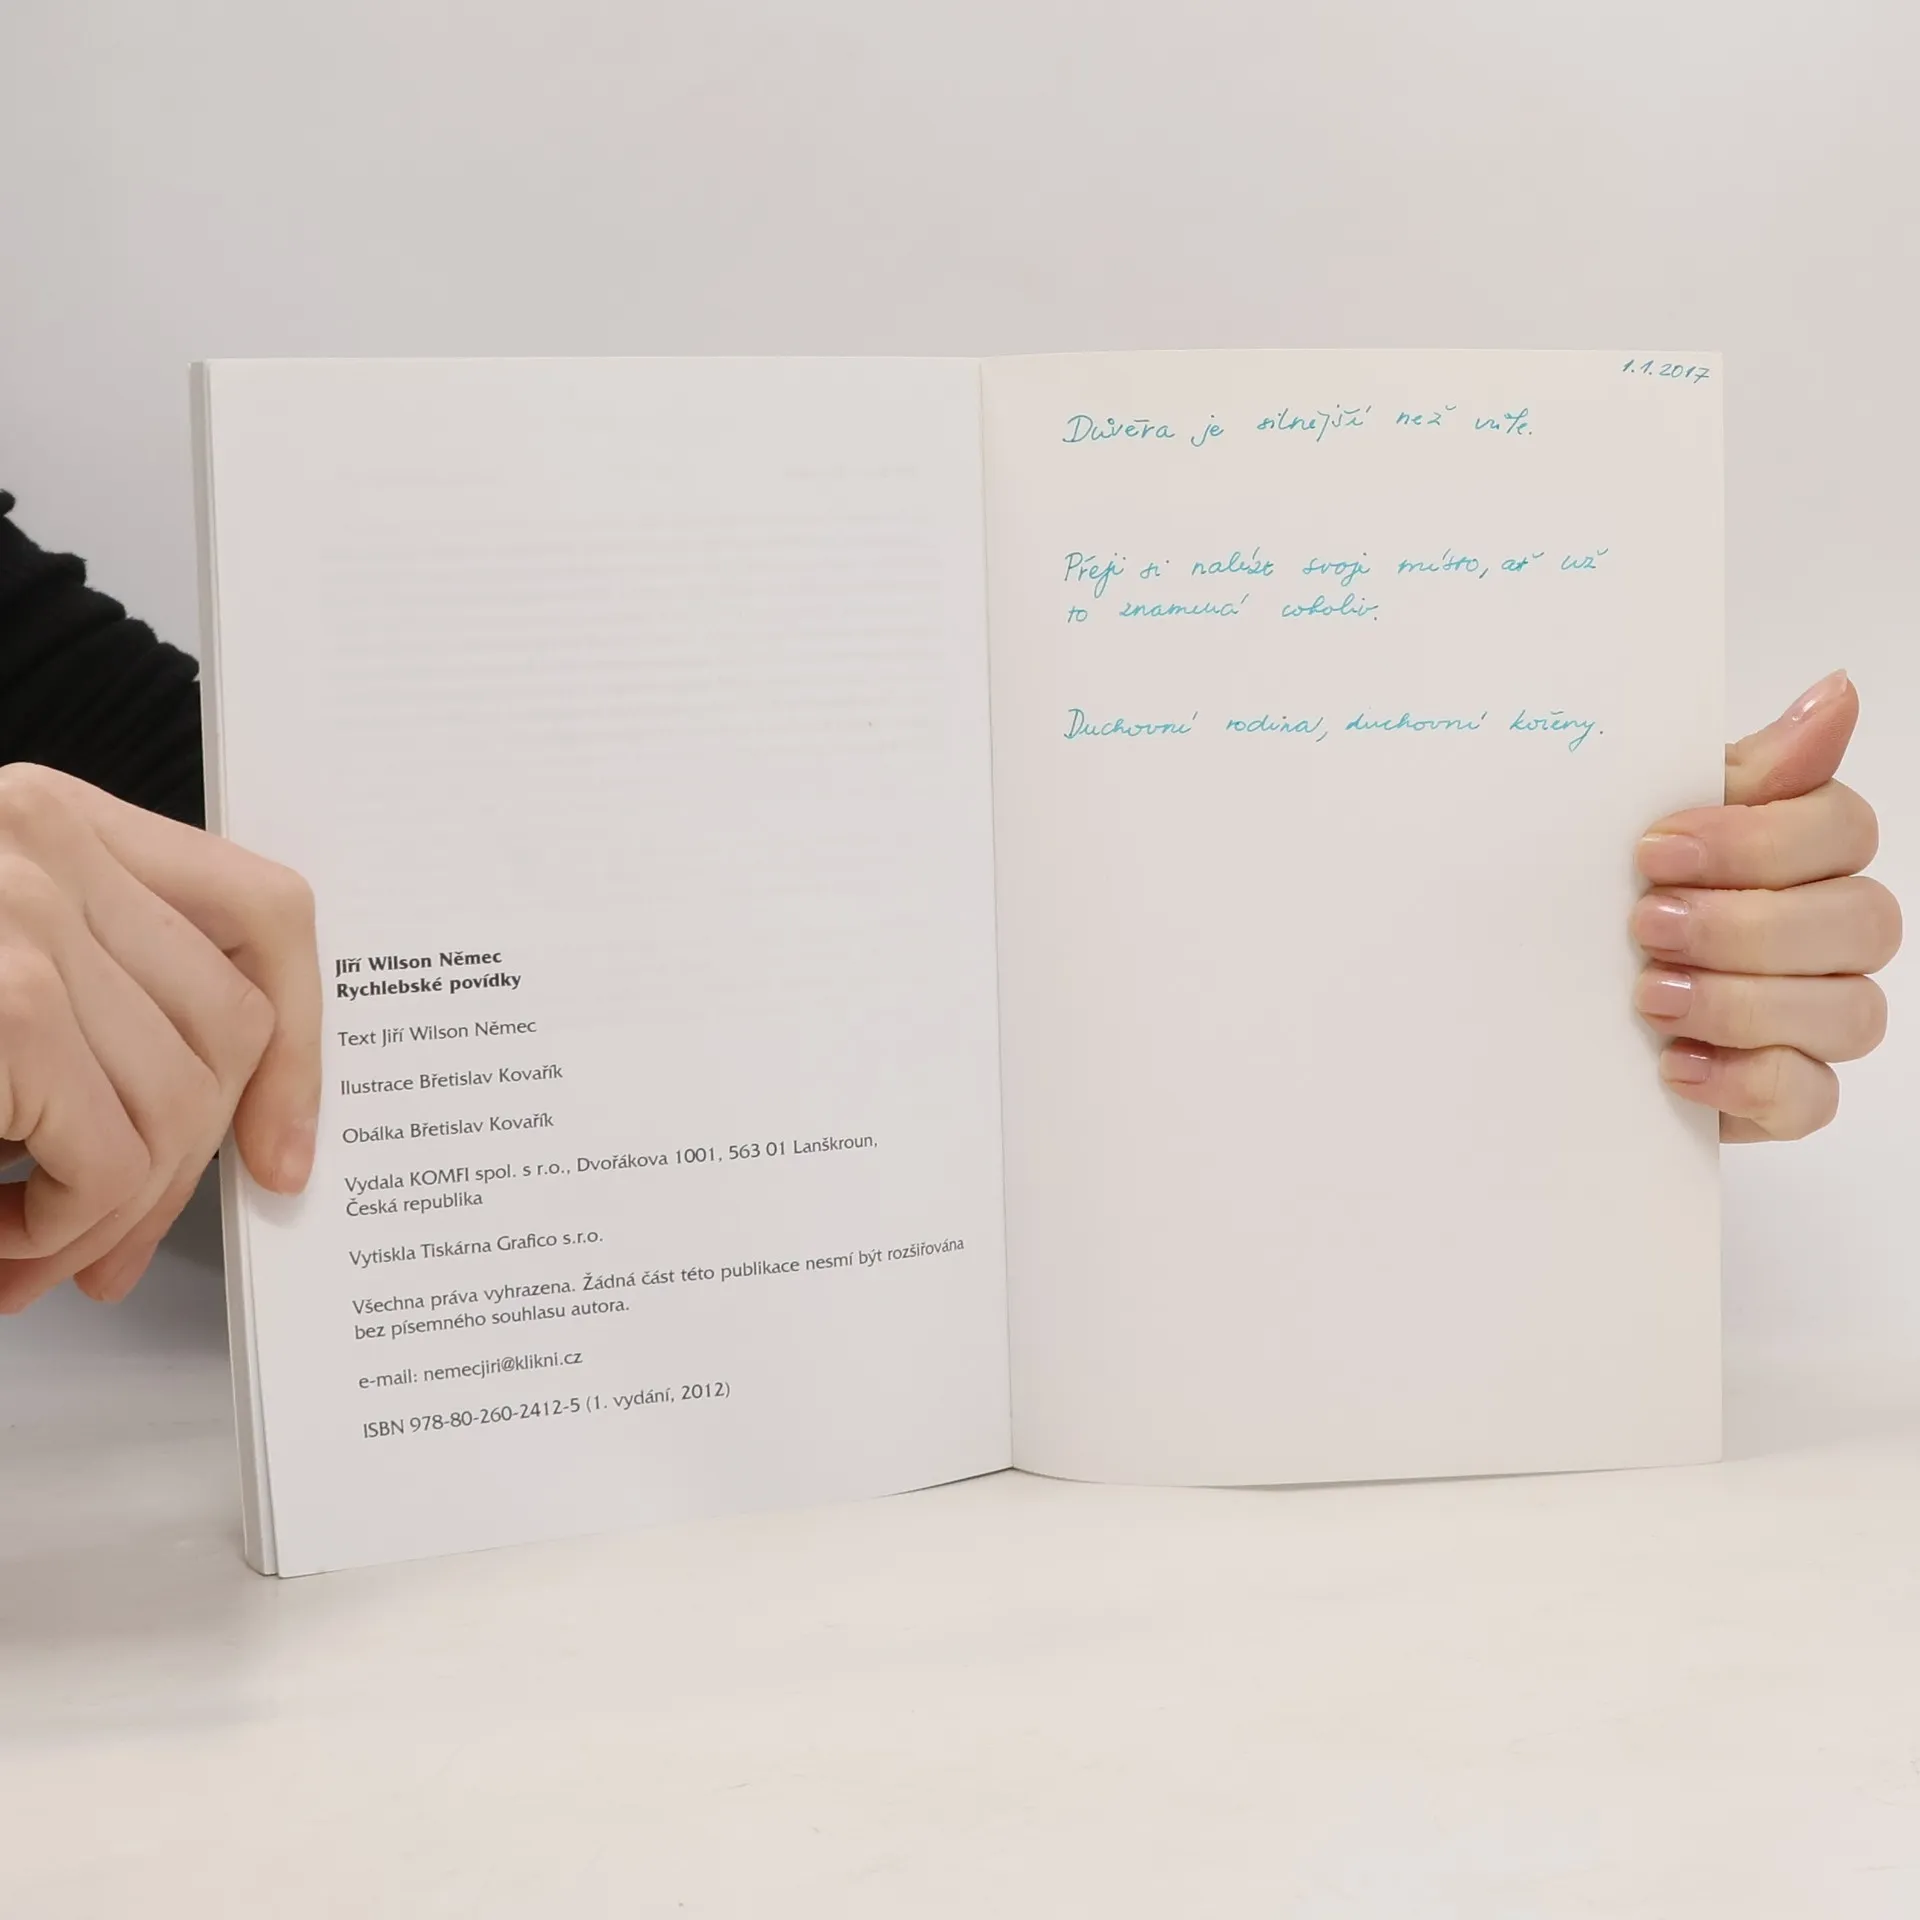 Jiří Wilson Němec
Rychlebské povídky
Text Jiří Wilson Němec
Ilustrace Břetislav Kovařík
Obálka Břetislav Kovařík
Vydala KOMFI spol. s r.o., Dvořákova 1001, 563 01 Lanškroun,
Česká republika
Vytiskla Tiskárna Grafico s.r.o.
Všechna práva vyhrazena. Žádná část této publikace nesmí být rozšiřována
bez písemného souhlasu autora.
e-mail: nemecjiri@klikni.cz
ISBN 978-80-260-2412-5 (1. vydání, 2012)
1.1.2017
Důvěra je silnější než vůle.
Přeji si nalézt svoji místo, ať už
to znamená cokoliv.
Duchovní rodina, duchovní kořeny.